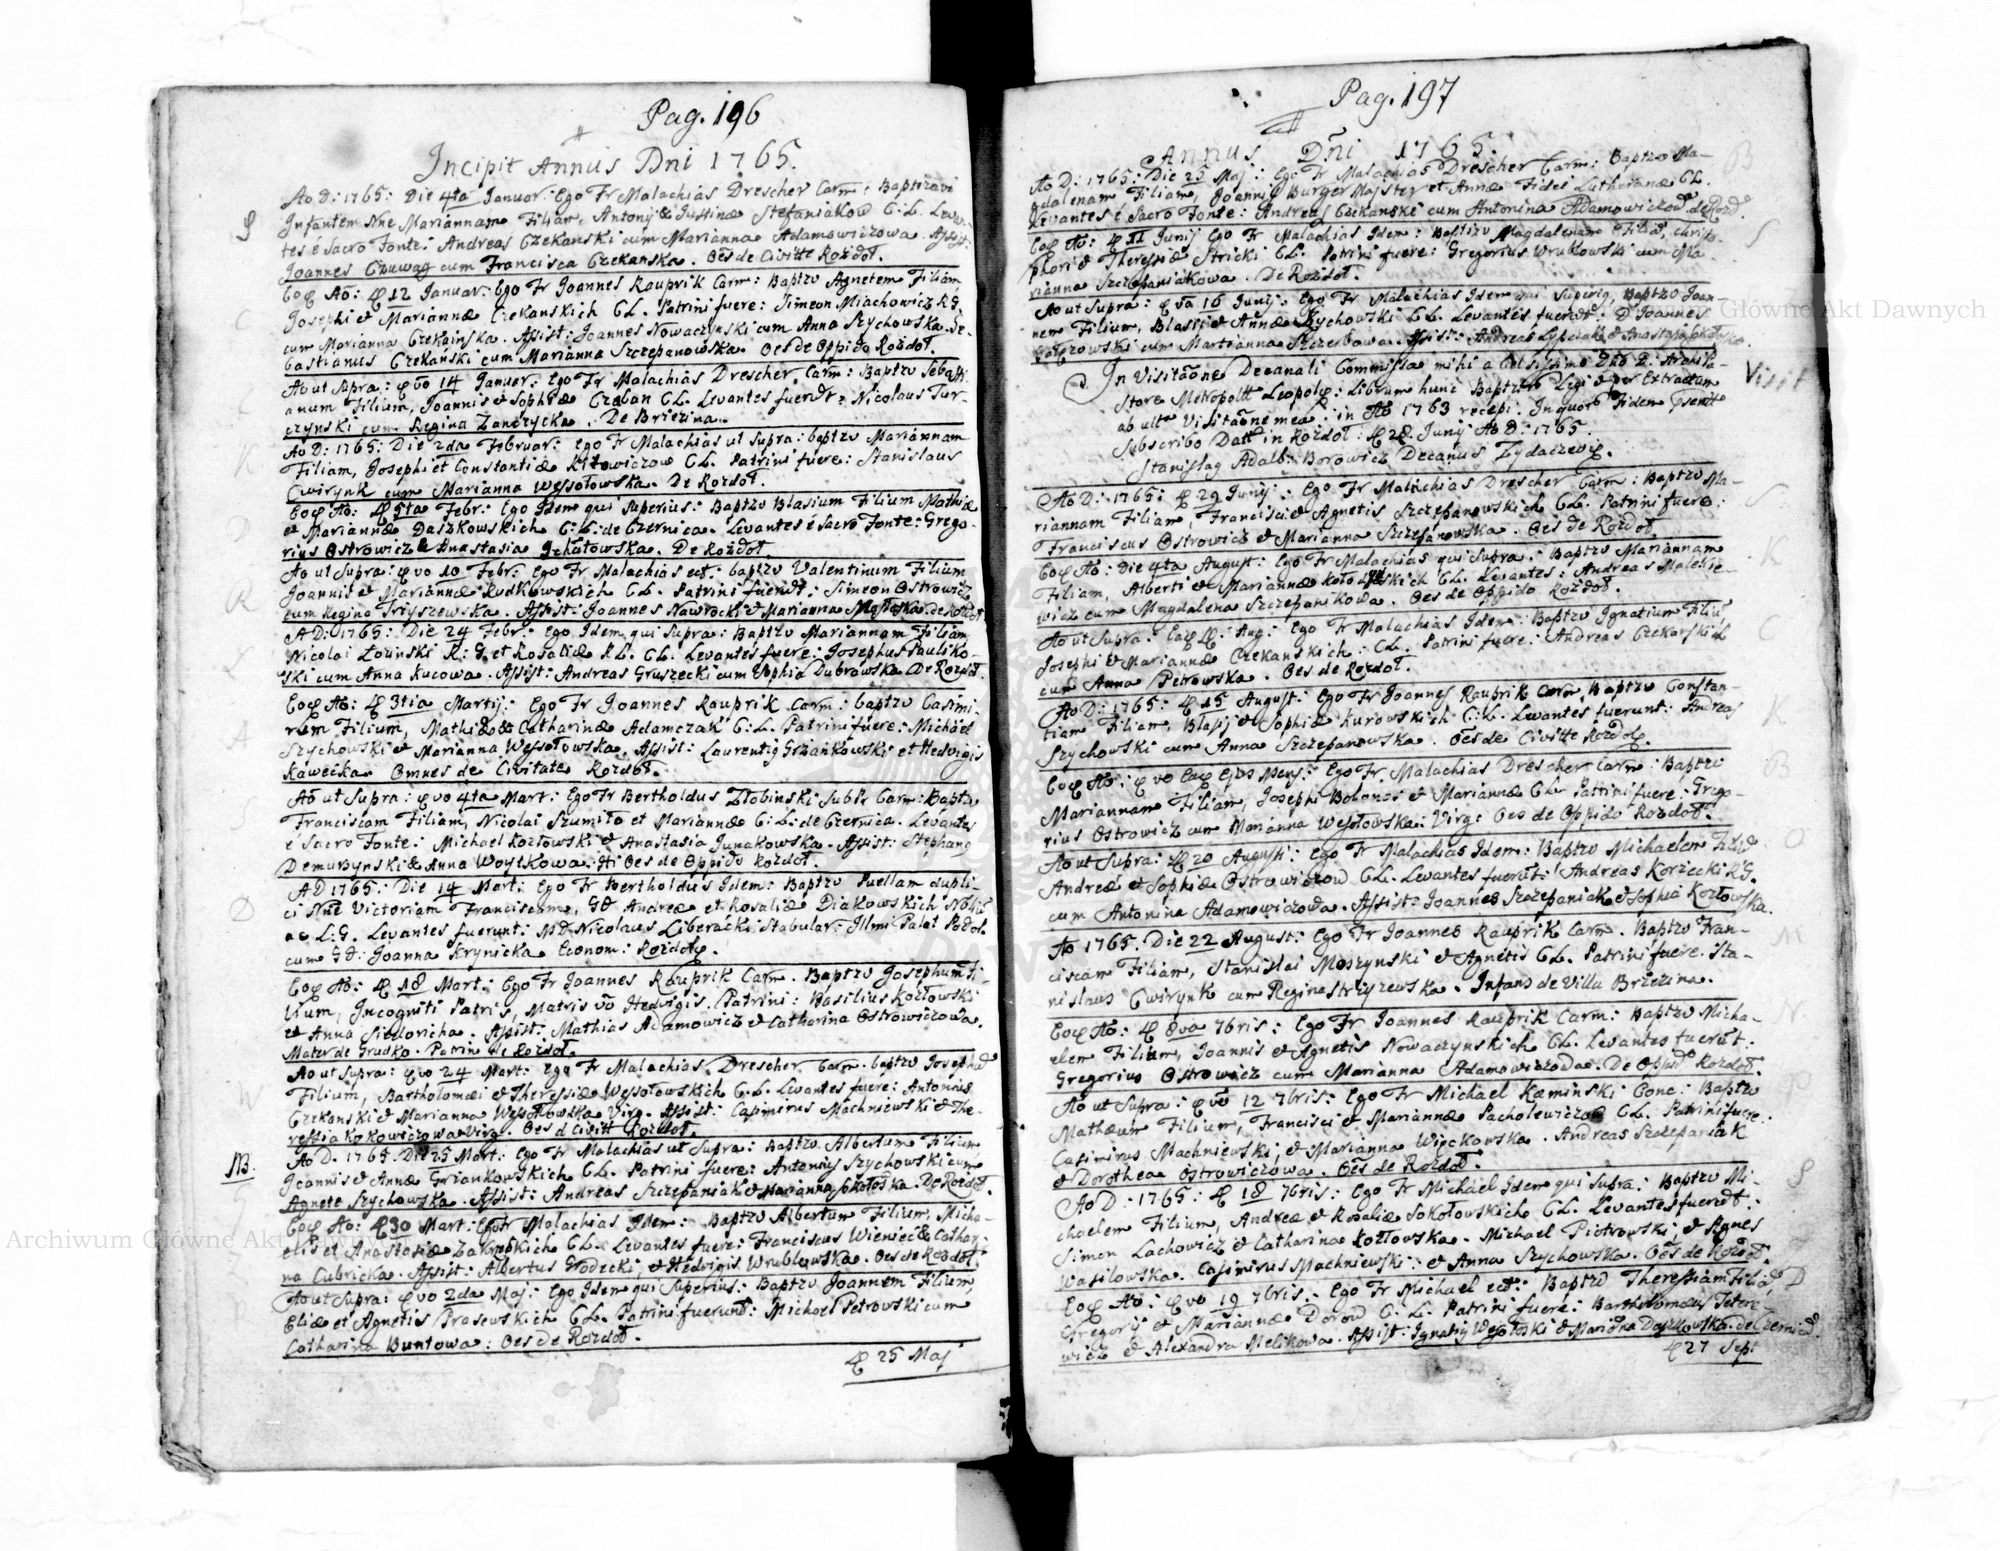 Pag. 196
Incipit Annus Dni 1765.
Ao D: 1765: Die 4ta Januar: Ego Fr Malachias Drescher Carm: Baptizavi
S Infantem Nne Mariannam Filiam, Antonij & Justinæ Stefaniakow C: L. Levan-
tes é Sacro Fonte: Andreas Czekanski cum Marianna Adamowiczowa. Assist:
Joannes Czuwag cum Francisca Czekanska. Oes de Civitte Rozdoł.
Eoq Ao: 12 Januar: Ego Fr Joannes Rauprik Carm: Baptzo Agnetem Filiam,
C Josephi et Mariannæ Czekanskich CL. Patrini fuere: Simeon Miachowicz R.G.
cum Marianna Czekainska. Assist: Joannes Nowaczynski cum Anna Szychowska. Se-
bastianus Czekanski cum Marianna Szczepanowska. Oes de Oppido Rozdoł.
Ao ut Supra: vo 14 Januar: Ego Fr Malachias Drescher, Carm: Baptzo Sebasti-
C anum Filium, Joannis et Sophiæ Czaban CL. Levantes fuerunt: Nicolaus Tur-
czynski cum Regina Zanczycka. De Briezina.
Ao D: 1765: Die 2da Februar: Ego Fr Malachias ut Supra: baptzo Mariannam
K Filiam, Josephi et Constantiæ Kitowiczow CL. Patrini fuere: Stanislaus
Cwirynk cum Marianna Wessołowska. De Rozdoł.
Eoq Ao: 5ta Febr: Ego Idem qui Superius: Baptzo Blasium Filium Mathiæ
D et Mariannæ Daszkowskich C: L: de Czernica. Levantes é Sacro Fonte: Grego-
rius Ostrowicz & Anastasia De Rozdoł.
Ao ut Supra: vo 10 Febr: Ego Fr Malachias ect: baptzo Valentinum Filium
R Joannis et Mariannæ Rudkowskich CL. Patrini fuerut: Simeon Ostrowicz
cum Regina Trzyszewska. Assist: Joannes Nawrocki & Marianna de Rozdoł
A D: 1765: Die 24 Febr: Ego Idem qui Supra: Baptzo Mariannam Filiam,
Ł Nicolai Łozinski R: G. et Rosaliæ R L. CL. Levantes fuere: Josephus Pauliko-
ski cum Anna Kucowa. Assist: Andreas Gruszecki cum Sophia Dubrawska De Rozdoł.
Eoq Ao: 3tia Martij: Ego Fr Joannes Rauprik Carm: baptzo Casimi-
A rum Filium, Mathiæ & Catharinæ Adamczak C: L. Patrini fuere: Michael
Szychowski et Marianna Wessołowska. Assist: Laurentig Grzankowski et Hedvigis
Kawecka. Omnes de Civitate Rozdoł.
Ao ut Supra: vo 4ta Mart: Ego Fr Bertholdus Złobinski SubPr Carm: Baptzo
Franciscam Filiam, Nicolai Szumiło et Mariannæ C: L: de Czernica. Levantes
é Sacro Fonte: Michael Kozłowski & Anastasia Junakowska. Assist: Stephang
Demuszynski & Anna Woytkowa. Oes de Oppido Rozdoł.
A D 1765: Die 14 Mart: Ego Fr Bertholdus Idem: Baptzo Puellam dupli-
D ci Nne Victoriam Franciscam, GD Andreæ et Rosaliæ Diakowskich
ac L: G. Levantes fuerunt: MD Nicolaus Liberacki Stabular: Illmi Palat Podol
cum GD: Joanna Krynicka Econom: Rozdol.
Eoq Ao: 18 Mart: Ego Fr Joannes Rauprik Carm. Baptzo Josephum Fi-
lium, Incogniti Patris, Matris vo Hedvigis. Patrini: Basilius Kozłowski
et Anna Siedoricha. Assist: Mathias Adamowicz & Catharina Ostrowiczowa.
Mater de Grudko. Patrin de Rozdoł.
Ao ut Supra: vo 24 Mart: Ego Fr Malachias Drescher Carm. baptzo Josephu
W Filium, Bartholomæi & Theressiæ Wessołowskich C. L. Levantes fuere: Antonius
Czekanski & Marianna Wessołowska Virg. Assist: Casimirus Machniewski & The-
ressia Kokowiczowa Virg. Oes d Civitt Rozdoł.
Ao D. 1765. Die 25 Mart: Ego Fr Malachias ut Supra: Baptzo Albertum Filium
NB. Joannis & Annæ Grzankowskich CL. Patrini fuere: Antonius Szychowski cum
Agnete Szychowska. Assist: Andreas Szczepaniak & Marianna De Rozdoł.
Eoq Ao: 30 Mart: Ego Fr Malachias Idem: Baptzo Albertum Filium, Micha-
Z elis et Anastasiæ Zakrzeskich CL. Levantes fuere: Franciscus Wieniec & Cathar-
na Cubricka. Assist: Albertus Grodecki, & Hedvigis Wrublewska. Oes de Rozdoł.
Ao ut Supra: vo 2da Maj: Ego Idem qui Superius: Baptzo Joannem Filium,
P Eliæ et Agnetis Prasewskich CL. Patrini fuerunt: Michael Petrowski cum
Catharina Buntowa: Oes de Rozdoł.
25 Maj
Pag. 197
Annus Dni 1765.
Ao D: 1765: Die 25 Maj: Ego Fr Malachias Drescher Carm: Baptzo Ma- B
gdalenam Filiam, Joannis Burger Majster et Annæ Fidei Lutheranæ CL.
Levantes é Sacro Fonte: Andreas Czekanski cum Antonina Adamowiczow. de Rozd.
Eoq Ao: 11 Junij Ego Fr Malachias Idem: Baptzo Magdalenam Filia, Christo- S
phori & Theressiæ Stricki CL. Patrini fuere: Gregorius Wrublowski cum Ma-
rianna Szczepaniakowa. De Rozdoł.
Ao ut Supra: va 16 Junij: Ego Fr Malachias Idem qui Superig, Baptzo Joan-
nem Filium, Blasij & Annæ Szychowski CL. Levantes fuerut: D Joannes
cum Marianna Szczerbowa. Assist: Andreas
In Visitaone Decanali Commissa mihi a Celsissimo Dno D: Archipa- Visit
store Metropoltt Leopol: Librum hunc Baptzor Legi & per Extractum
ab ultа Visitaone mea: in Ao 1763 recepi. In quor Fidem psentt
Subscribo Datt in Rozdoł: 28. Junij Ao D: 1765.
Stanislag Adalb: Borowicz Decanus Zydaczev.
Ao D: 1765: 29 Junij: Ego Fr Malachias Drescher Carm: Baptzo Ma- S
riannam Filiam, Francisci & Agnetis Szczepanowskich CL. Patrini fuere:
Franciscus Ostrowicz & Marianna Szczepanowska. Oes de Rozdoł.
Eoq Ao: Die 4ta August: Ego Fr Malachias qui Supra: Baptzo Mariannam K
Filiam, Alberti & Mariannæ CL. Levantes: Andreas Malekie-
wicz cum Magdalena Szczepanikowa. Oes de Oppido Rozdoł.
Ao ut Supra: Eaq: Aug: Ego Fr Malachias Idem: Baptzo Ignatium Filiu C
Josephi & Mariannæ Czekanskich: CL. Patrini fuere: Andreas Czekanski
cum Anna Petrowska. Oes de Rozdoł.
Ao D: 1765: 15 August: Ego Fr Joannes Rauprik Carm Baptzo Constan- K
tiam Filiam, Blasij & Sophiæ Kurowskich C: L. Levantes fuerunt: Andreas
Szychowski cum Anna Szczepanowska. Oes de Civitte Rozdol.
Eoq Ao: vo Eaq Ejus Mens: Ego Fr. Malachias Drescher Carm: Baptzo B
Mariannam Filiam, Josephi Bolonos & Mariannæ CL. Patrini fuere: Grego-
rius Ostrowicz cum Marianna Wesołowska: Virg: Oes de Oppido Rozdoł.
Ao ut Supra: 20 Augusti: Ego Fr Malachias Idem: Baptzo Michaelem Filiu O
Andreæ et Sophiæ Ostrowiczow CL. Levantes fuerut: Andreas Korzecki R G.
cum Antonina Adamowiczowa. Assist: Joannes Szczepaniak & Sophia Kozłowska.
Ao 1765. Die 22 August: Ego Fr Joannes Rauprik Carm. Baptzo Fran- M
ciscam Filiam, Stanislai Moszynski & Agnetis CL. Patrini fuere. Sta-
nislaus Cwirynk cum Regina Strzyzewska. Infans de Villa Brzezina.
Eoq Ao: 8va 7bris: Ego Fr Joannes Rauprik Carm: Baptzo Micha- N
elem Filium, Joannis & Agnetis Nowaczynskich CL. Levantes fuerut:
Gregorius Ostrowicz cum Marianna Adamowiczowa. De Oppid Rozdoł.
Ao ut Supra: vo 12 7bris: Ego Fr Michael Kaminski Conc: Baptzo P
Mathæum Filium, Francisci & Mariannæ Pacholewiczow CL. Patrini fuere:
Casimirus Machniewski, & Marianna Więckowska. Andreas Szczepaniak
& Dorothea Ostrowiczowa. Oes de Rozdoł.
Ao D: 1765: 18 7bris: Ego Fr Michael Idem qui Supra: Baptzo Mi- S
chaelem Filium, Andreæ & Rosaliæ Sokołowskich CL. Levantes fuerut:
Simon Lachowicz & Catharina Kozłowska. Michael Piotrowski & Agnes
Wasilowska. Casimirus Machniewski: & Anna Szychowska. Oes de Rozdoł.
Eoq Ao: vo 19 7bris: Ego Fr Michael ect: Baptzo Theressiam Filia, D
Gregorij & Mariannæ Dorow C. L. Patrini fuere: Bartholomæus Teter-
wicz & Alexandra Melikowa. Assist: Ignatig Wesołoski & Marianna Daszkowska. de Czernica.
27 Sept